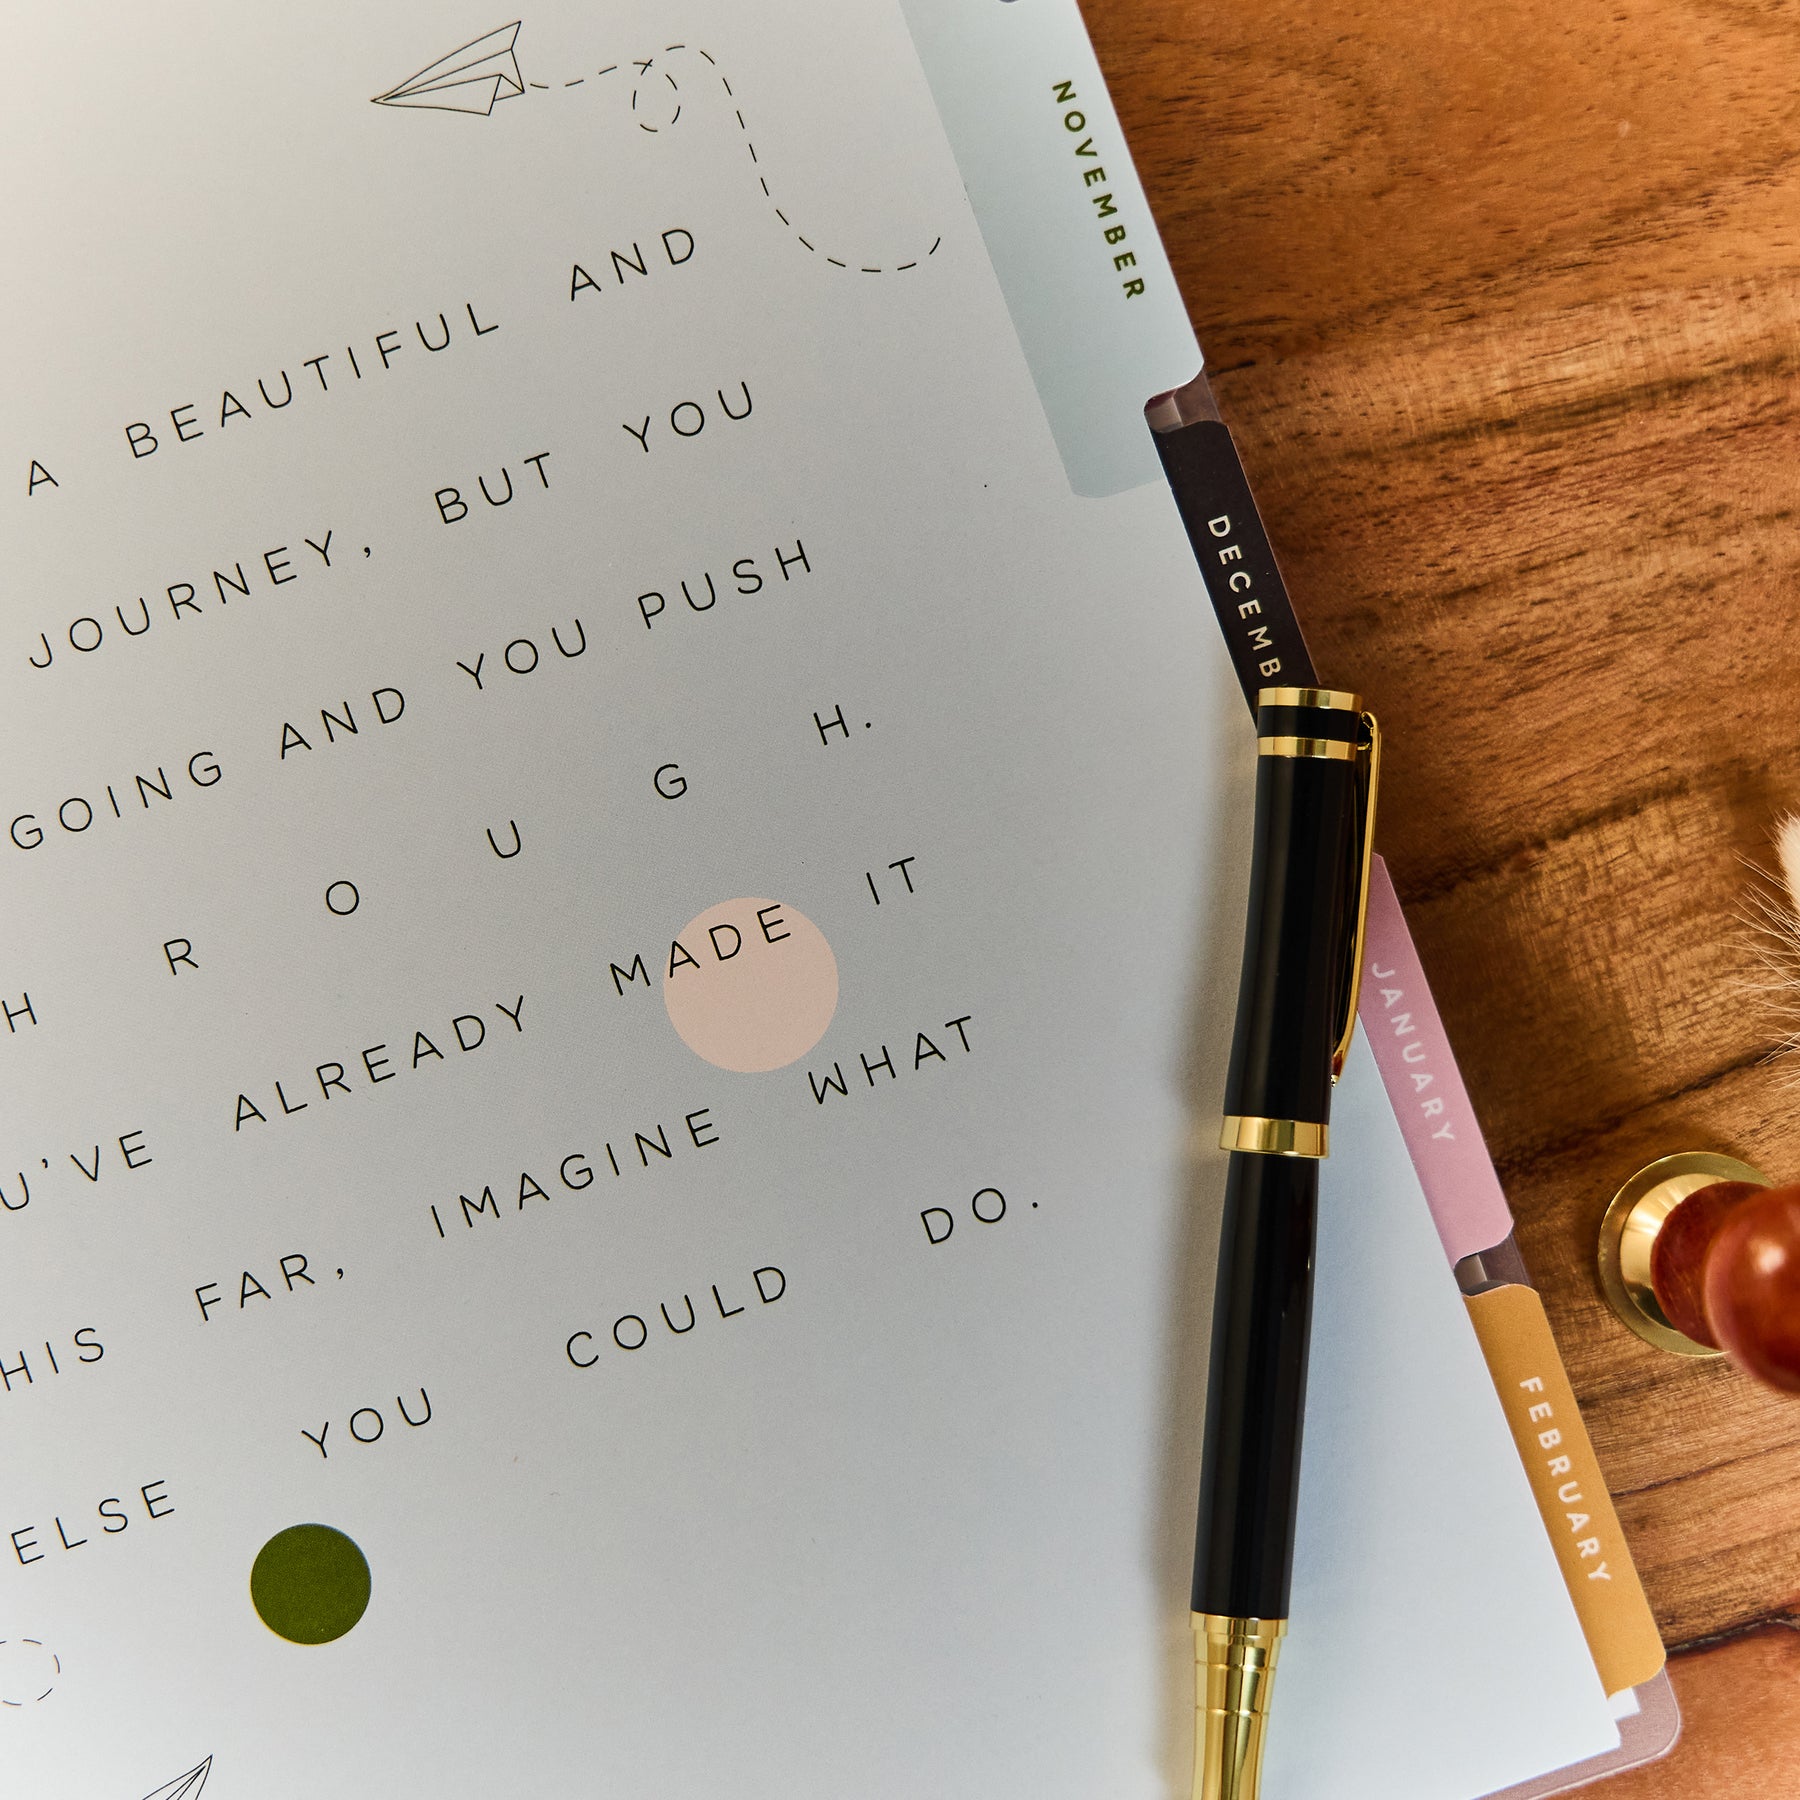 A BEAUTIFUL AND
JOURNEY, BUT YOU
GOING AND YOU PUSH
H R O U G H.
U'VE ALREADY MADE IT
HIS FAR, IMAGINE WHAT
ELSE YOU COULD DO.
NOVEMBER
DECEMB
JANUARY
FEBRUARY